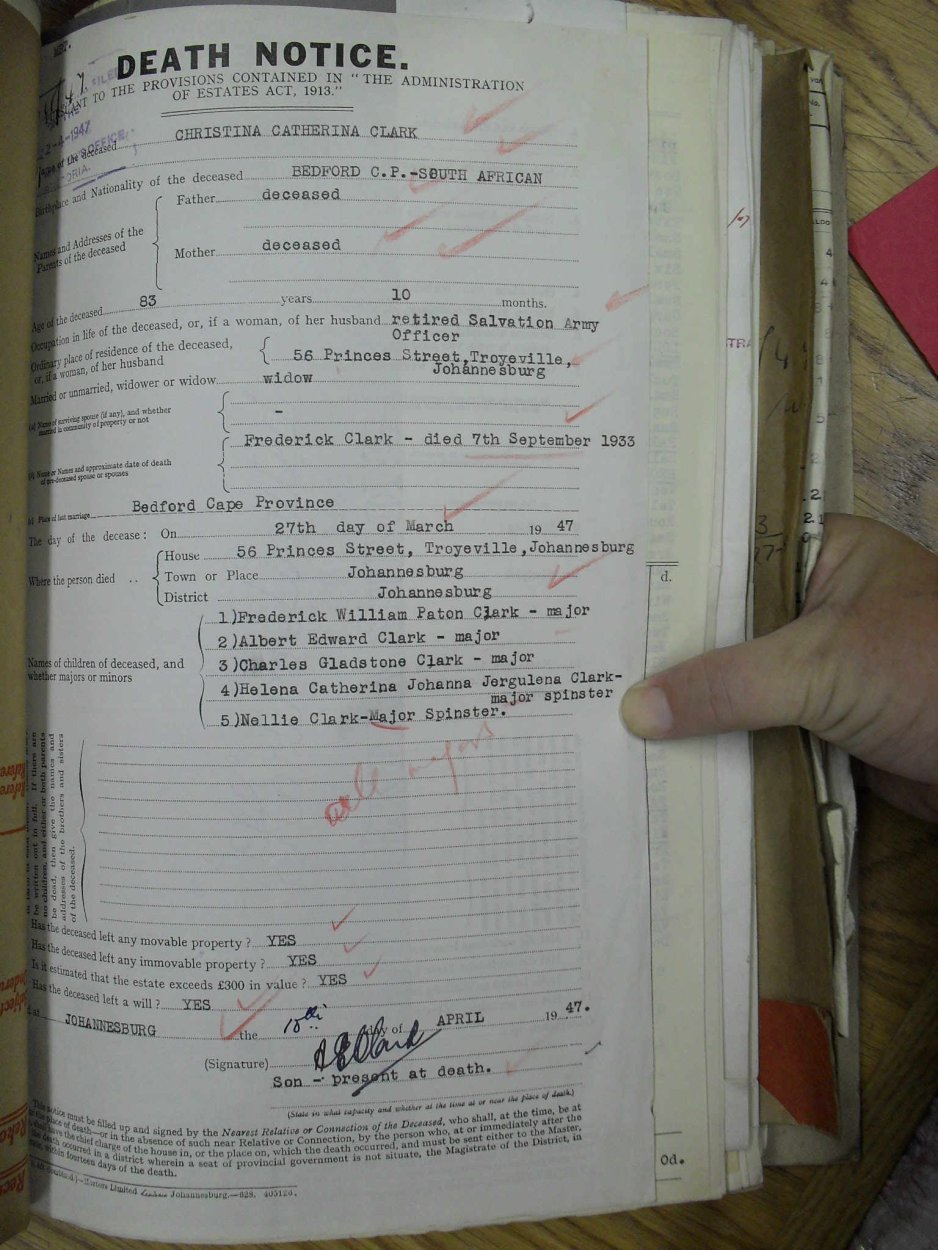 DEATH NOTICE.
TO THE PROVISIONS CONTAINED IN "THE ADMINISTRATION
OF ESTATES ACT, 1913."
1947
CHRISTINA CATHERINA CLARK
of the deceased
Birthplace and Nationality of the deceased BEDFORD C.P.-SOUTH AFRICAN
Names and Addresses of the Parents of the deceased
Father deceased
Mother deceased
Age of the deceased 83 years 10 months.
Occupation in life of the deceased, or, if a woman, of her husband retired Salvation Army
Officer
Ordinary place of residence of the deceased, or, if a woman, of her husband
56 Princes Street,Troyeville,
Johannesburg
Married or unmarried, widower or widow widow
(a) Name of surviving spouse (if any), and whether married in community of property or not -
Frederick Clark - died 7th September 1933
(b) Name or Names and approximate date of death of pre-deceased spouse or spouses
(c) Place of last marriage Bedford Cape Province
The day of the decease: On 27th day of March 19 47
Where the person died ..
House 56 Princes Street, Troyeville,Johannesburg
Town or Place Johannesburg
District Johannesburg
Names of children of deceased, and whether majors or minors
1)Frederick William Paton Clark - major
2)Albert Edward Clark - major
3)Charles Gladstone Clark - major
4)Helena Catherina Johanna Jergulena Clark-
major spinster
5)Nellie Clark-Major Spinster.
all majors
be written out in full. If there are
no children, and either or both parents
be dead, then give the names and
addresses of the brothers and sisters
of the deceased.
Has the deceased left any movable property ? YES
Has the deceased left any immovable property ? YES
Is it estimated that the estate exceeds £300 in value ? YES
Has the deceased left a will ? YES
at JOHANNESBURG the day of APRIL 19 47.
(Signature)
Son - present at death.
(State in what capacity and whether at the time at or near the place of death)
This notice must be filled up and signed by the Nearest Relative or Connection of the Deceased, who shall, at the time, be at
the place of death—or in the absence of such near Relative or Connection, by the person who, at or immediately after the
have the chief charge of the house in, or the place on, which the death occurred, and must be sent either to the Master,
the death occurred in a district wherein a seat of provincial government is not situate, the Magistrate of the District, in
within fourteen days of the death.
Limited Johannesburg.—628.
d.
0d.